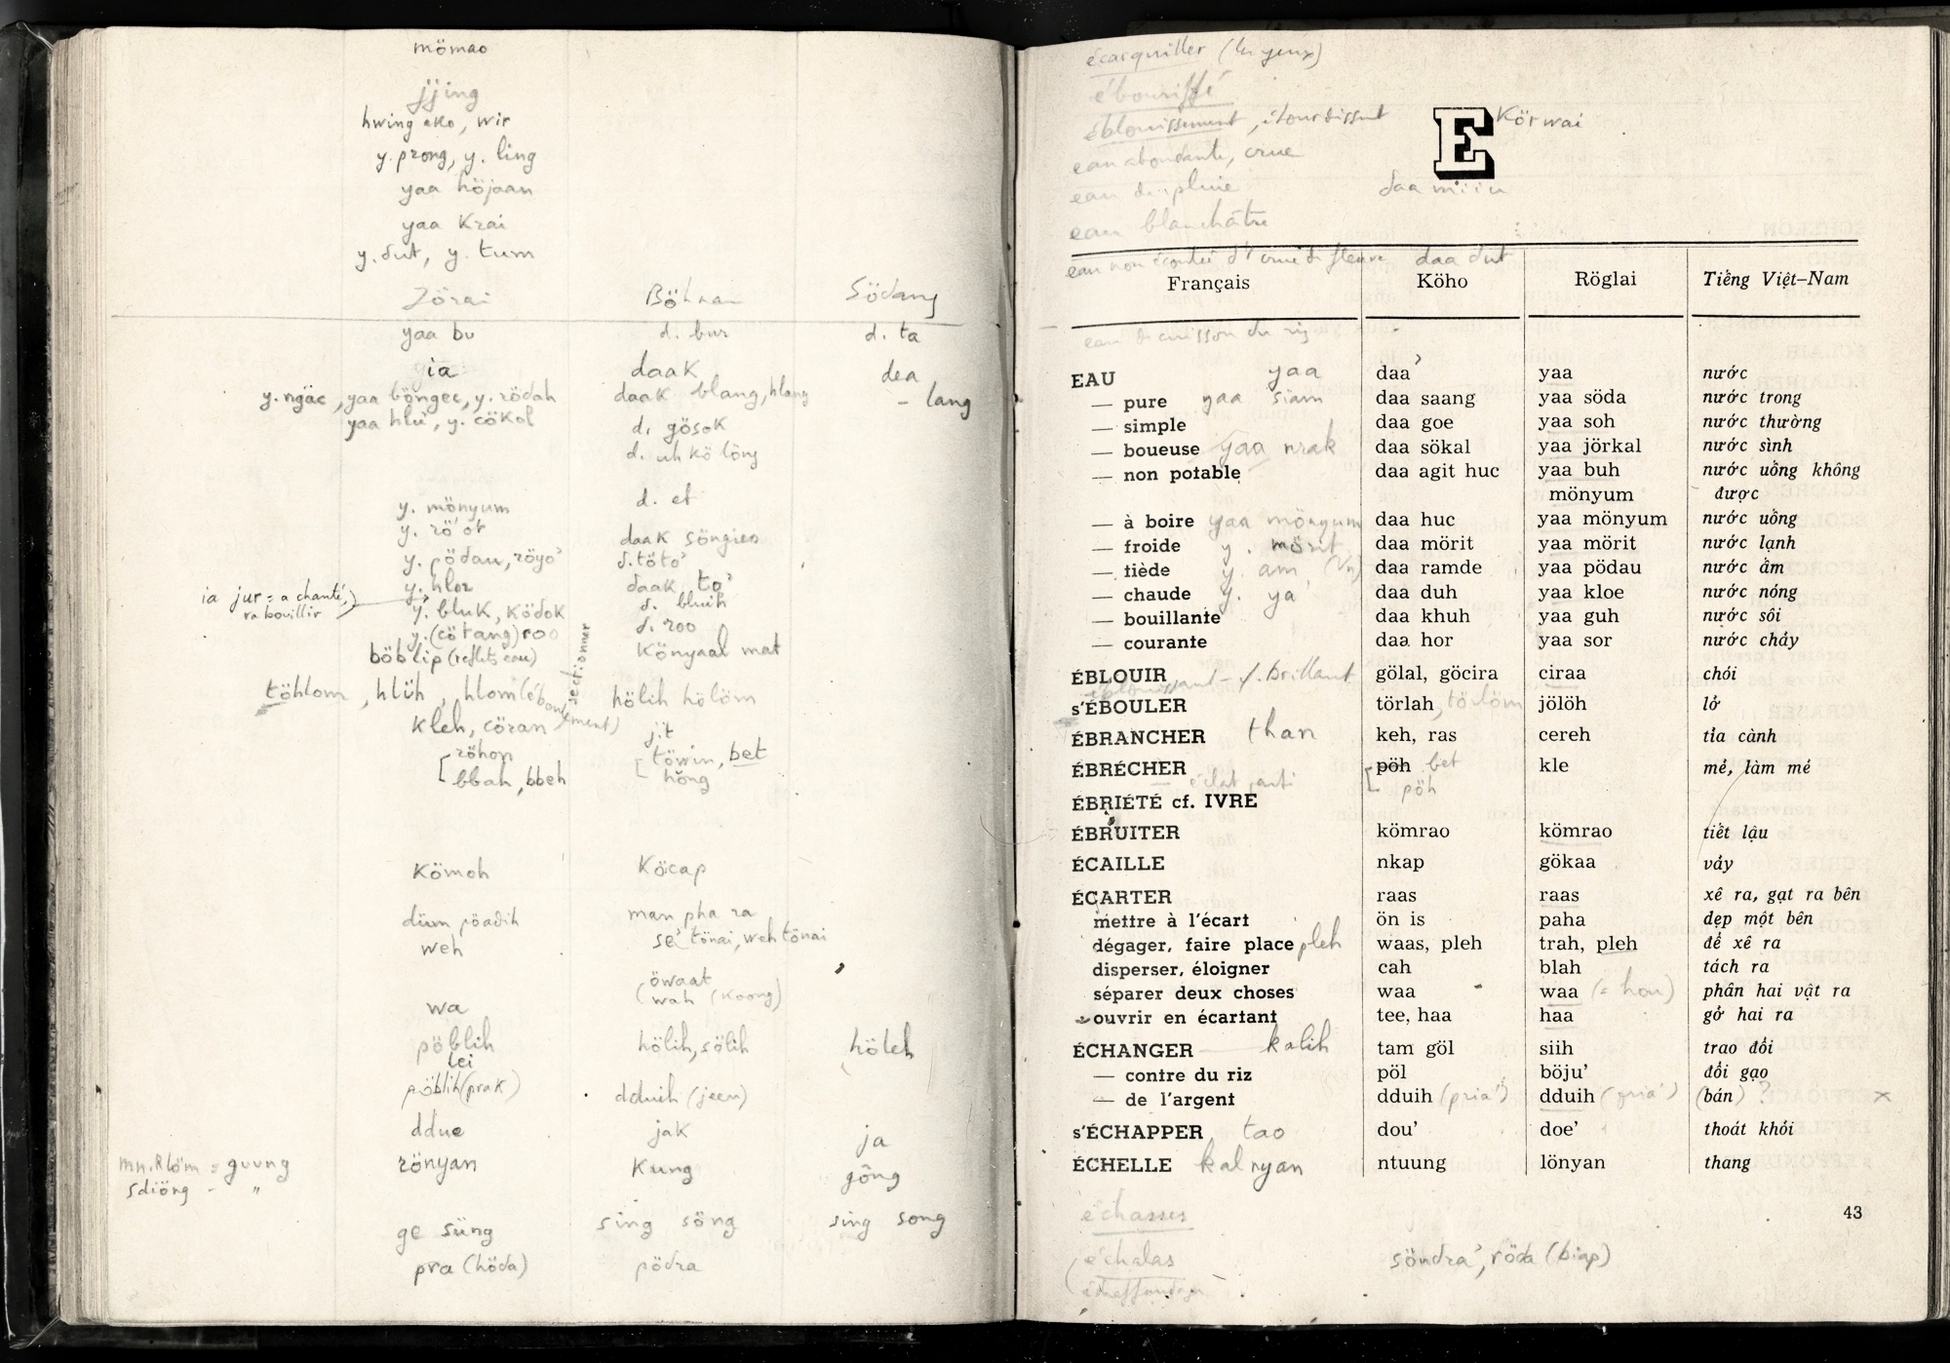 mömao
jjing
hwing öko, wir
y. prong, y. ling
yaa höjaan
yaa Krai
y. dut, y. tum
Jörai Böhnar Södang
yaa bu d. bur d. ta
gia daak dea
y. ngäc, yaa böngec, y. rödah daak blang, hlang - lang
yaa hlu', y. cökol d. gösok
d. uh kö lōng
y. mönyum d. et
y. rö'ot daak söngieo
y. pödau, röyo' d. töto'
ia jur = a chanté, y. hlor daak to'
ra bouillir y. bluk, ködok d. bluih
y. (cötang) roo d. roo
böblip (reflets eau) könyaal mat
töhlom, hlüh, hlom (éboulement) hölih hölöm
sectionner
kleh, cöran jit
röhon töwin, bet
bbah, bbeh höng
Kömoh Köcap
düm pöadih man pha ra
weh se' tönai, weh tönai
öwaat
wa wah (Koong)
pöblih hölih, sölih höleh
lei
pöblih (prak) dduih (jeen)
ddue jak ja
mn. Rlöm = guung rönyan Kung gông
sdiöng - "
ge süng sing söng sing song
pra (höda) pödra
écarquiller (les yeux)
ébouriffé
éblouissement, étourdissant
E Körwai
eau abondante, crue
eau de pluie daa miiu
eau blanchâtre
eau non écoulée d'crue de fleuve daa dut
Français Köho Röglai Tiếng Việt-Nam
eau de cuisson du riz
EAU yaa daa' yaa nước
— pure yaa siam daa saang yaa söda nước trong
— simple daa goe yaa soh nước thường
— boueuse yaa nrak daa sökal yaa jörkal nước sình
— non potable daa agit huc yaa buh nước uống không
mönyum được
— à boire yaa mönyum daa huc yaa mönyum nước uống
— froide y. mörit daa mörit yaa mörit nước lạnh
— tiède y. am (Vn) daa ramde yaa pödau nước ấm
— chaude y. ya' daa duh yaa kloe nước nóng
— bouillante daa khuh yaa guh nước sôi
— courante daa hor yaa sor nước chảy
ÉBLOUIR gölal, göcira ciraa chói
éblouissant - v. Brillant
s'ÉBOULER törlah, törlöm jölöh lở
ÉBRANCHER than keh, ras cereh tỉa cành
ÉBRÉCHER pöh bet kle mẻ, làm mẻ
éclat parti pöh
ÉBRIÉTÉ cf. IVRE
ÉBRUITER kömrao kömrao tiết lậu
ÉCAILLE nkap gökaa vảy
ÉCARTER raas raas xê ra, gạt ra bên
mettre à l'écart ön is paha dẹp một bên
dégager, faire place pleh waas, pleh trah, pleh để xê ra
disperser, éloigner cah blah tách ra
séparer deux choses waa waa (= hou) phân hai vật ra
ouvrir en écartant tee, haa haa gở hai ra
ÉCHANGER kalih tam göl siih trao đổi
— contre du riz pöl böju' đổi gạo
— de l'argent dduih (pria') dduih (pria') (bán) ? x
s'ÉCHAPPER tao dou' doe' thoát khỏi
ÉCHELLE kalnyan ntuung lönyan thang
43
échasses
échalas söndra', röda (biap)
échaffauder